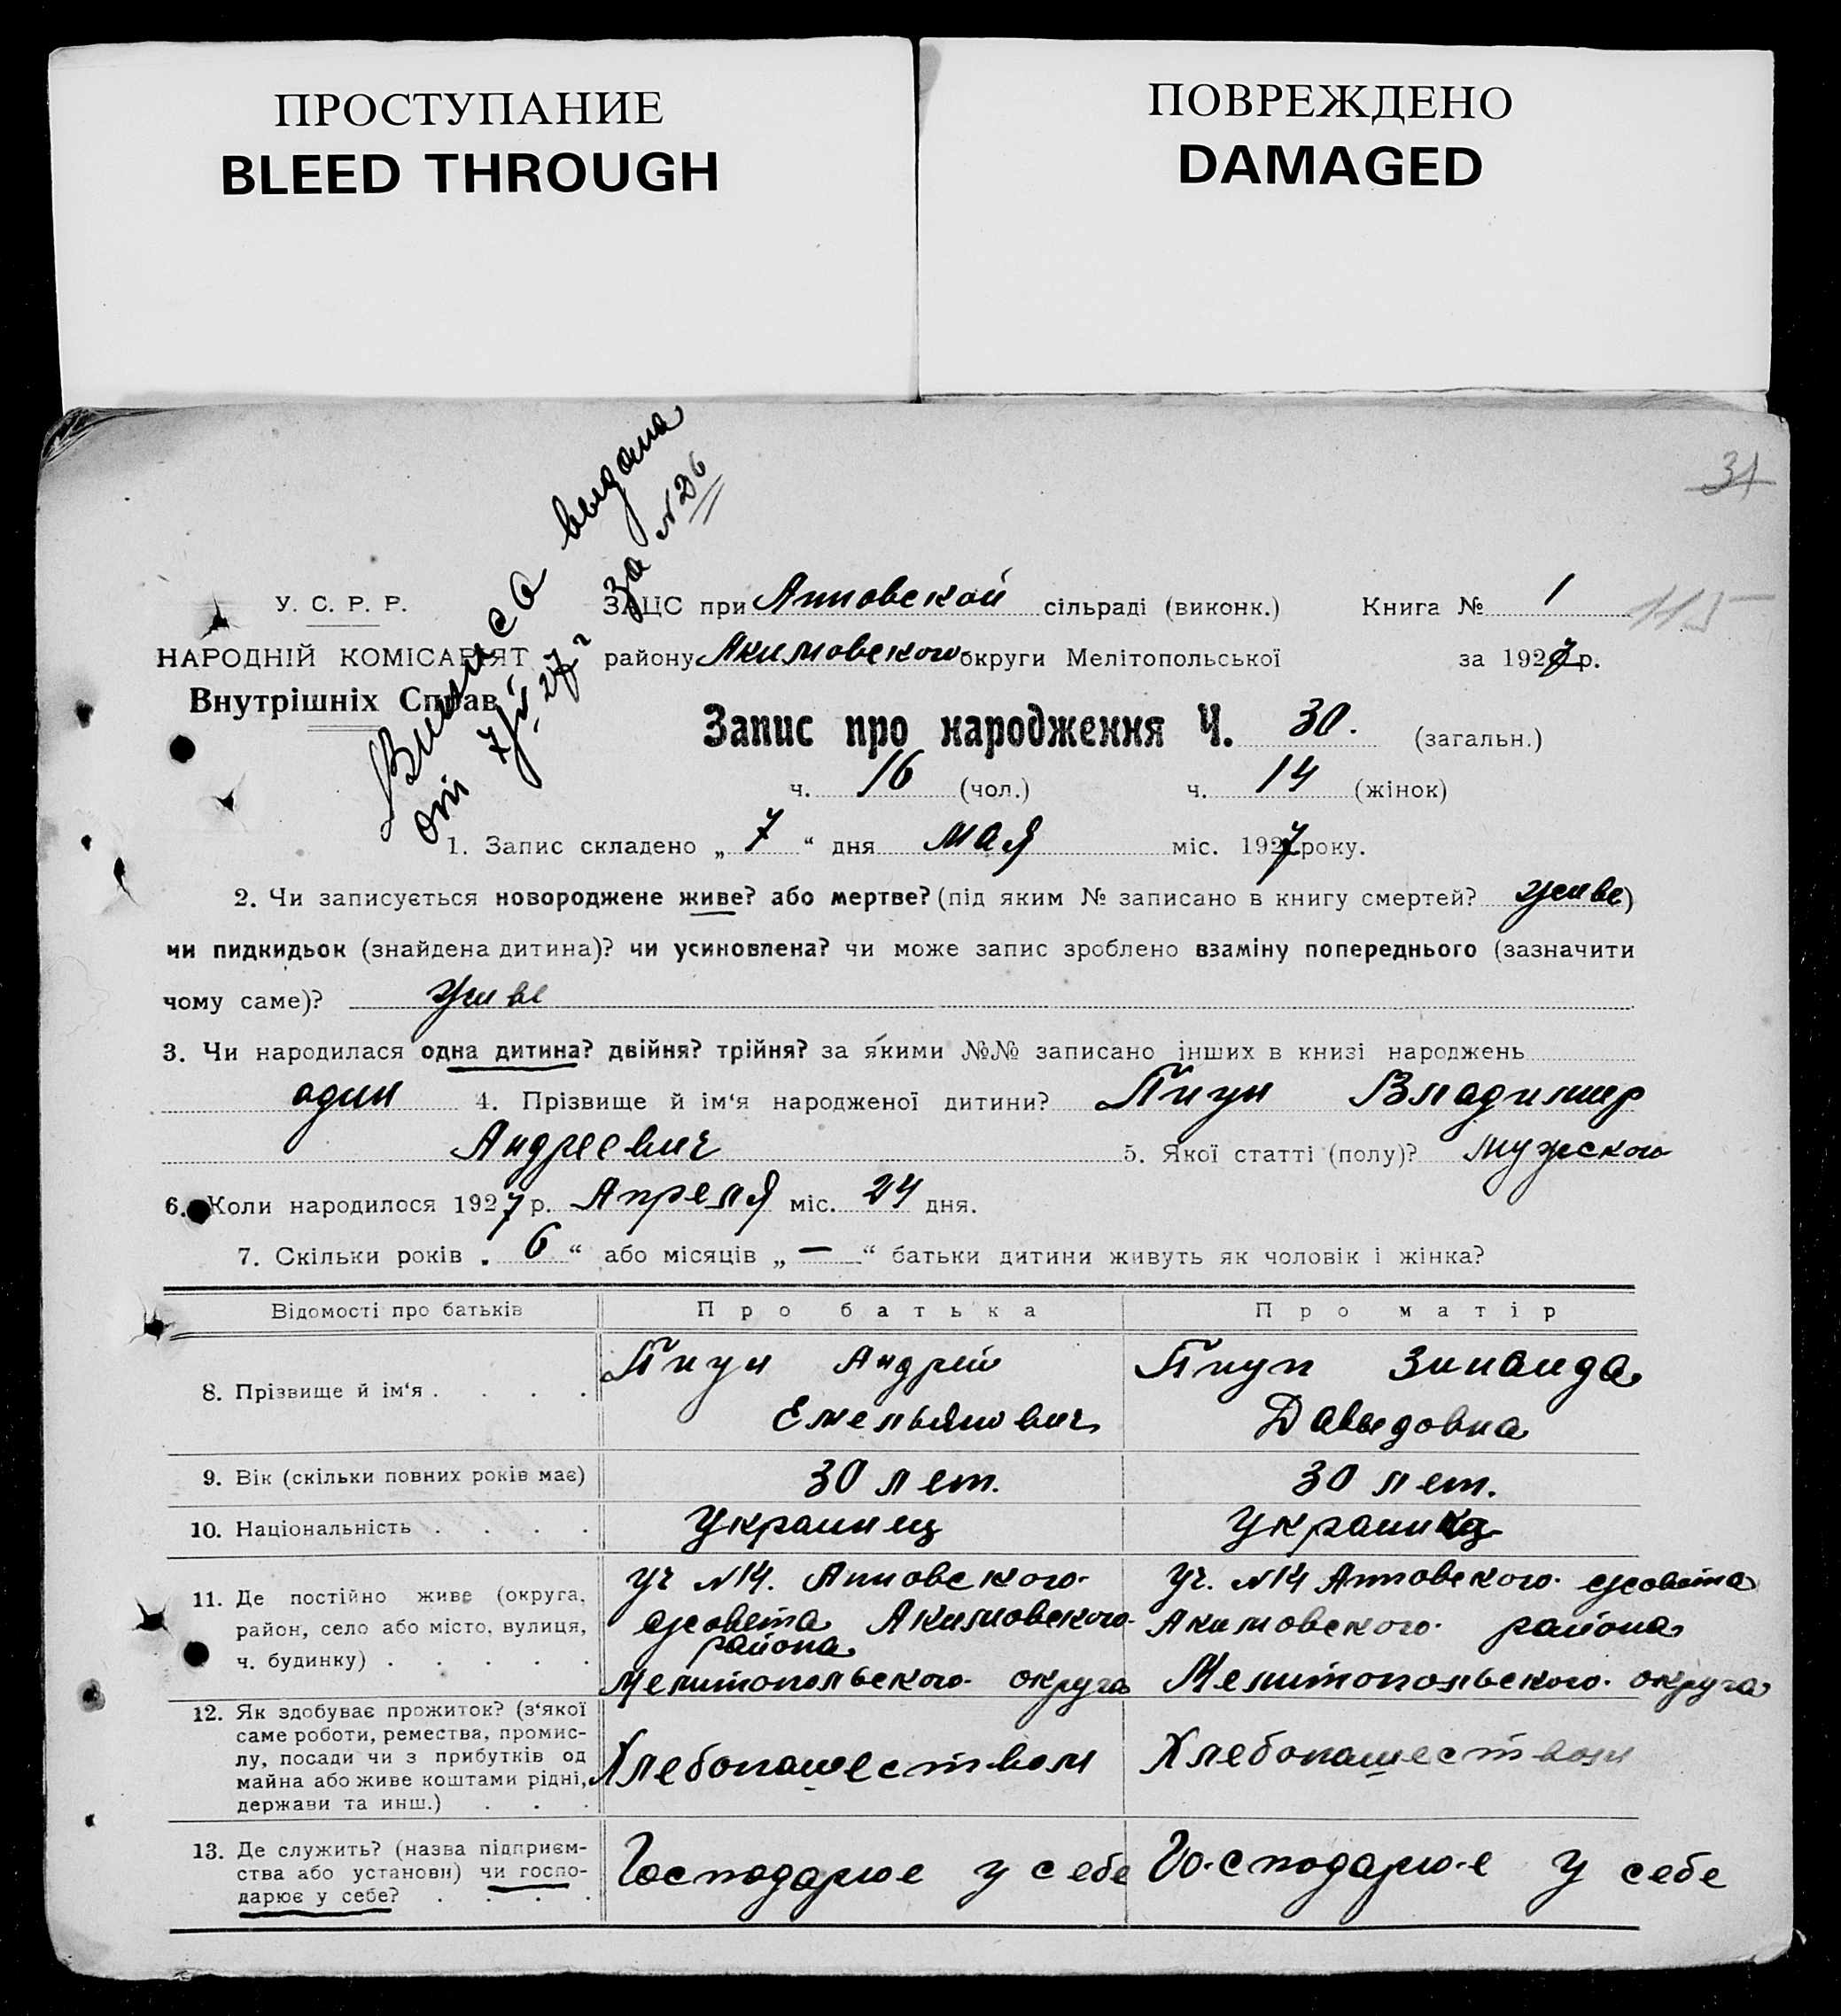 ПРОСТУПАНИЕ
BLEED THROUGH
ПОВРЕЖДЕНО
DAMAGED
31
Выпись выдана
от 7/V 27 г за № 26
У. С. Р. Р.
НАРОДНІЙ КОМІСАРІЯТ
Внутрішніх Справ
ЗАЦС при Анновской сільраді (виконк.) Книга № 1
115
району Акимовского округи Мелітопольської за 1927 р.
Запис про народження Ч. 30. (загальн.)
ч. 16 (чол.) ч. 14 (жінок)
1. Запис складено „ 7 “ дня мая міс. 1927 року.
2. Чи записується новороджене живе? або мертве? (під яким № записано в книгу смертей? живе)
чи пидкидьок (знайдена дитина)? чи усиновлена? чи може запис зроблено взаміну попереднього (зазначити
чому саме)? живе
3. Чи народилася одна дитина? двійня? трійня? за якими №№ записано інших в книзі народжень
один 4. Прізвище й ім‘я народженої дитини? Пкун Владимир
Андреевич 5. Якої статті (полу)? мужеского
6. Коли народилося 1927 р. Апреля міс. 24 дня.
7. Скільки років „ 6 “ або місяців „ — “ батьки дитини живуть як чоловік і жінка?
Відомості про батьків Про батька Про матір
8. Прізвище й ім‘я . . . .
Пкун Андрей
Емельянович
Пкун Зинаида
Давыдовна
9. Вік (скільки повних років має) 30 лет. 30 лет.
10. Національність . . . . Украинец Украинка
11. Де постійно живе (округа,
район, село або місто, вулиця,
ч. будинку) . . . . .
Уч №14. Анновского
с/совета Акимовского
района
Мелитопольского округа
Уч. №14 Анновского с/совета
Акимовского района
Мелитопольского округа
12. Як здобуває прожиток? (з‘якої
саме роботи, ремества, промис-
лу, посади чи з прибутків од
майна або живе коштами рідні,
держави та инш.) . . .
Хлебопашеством
Хлебопашеством
13. Де служить? (назва підприєм-
ства або установи) чи госпо-
дарює у себе? . . . .
Господарює у себе
Господарює у себе